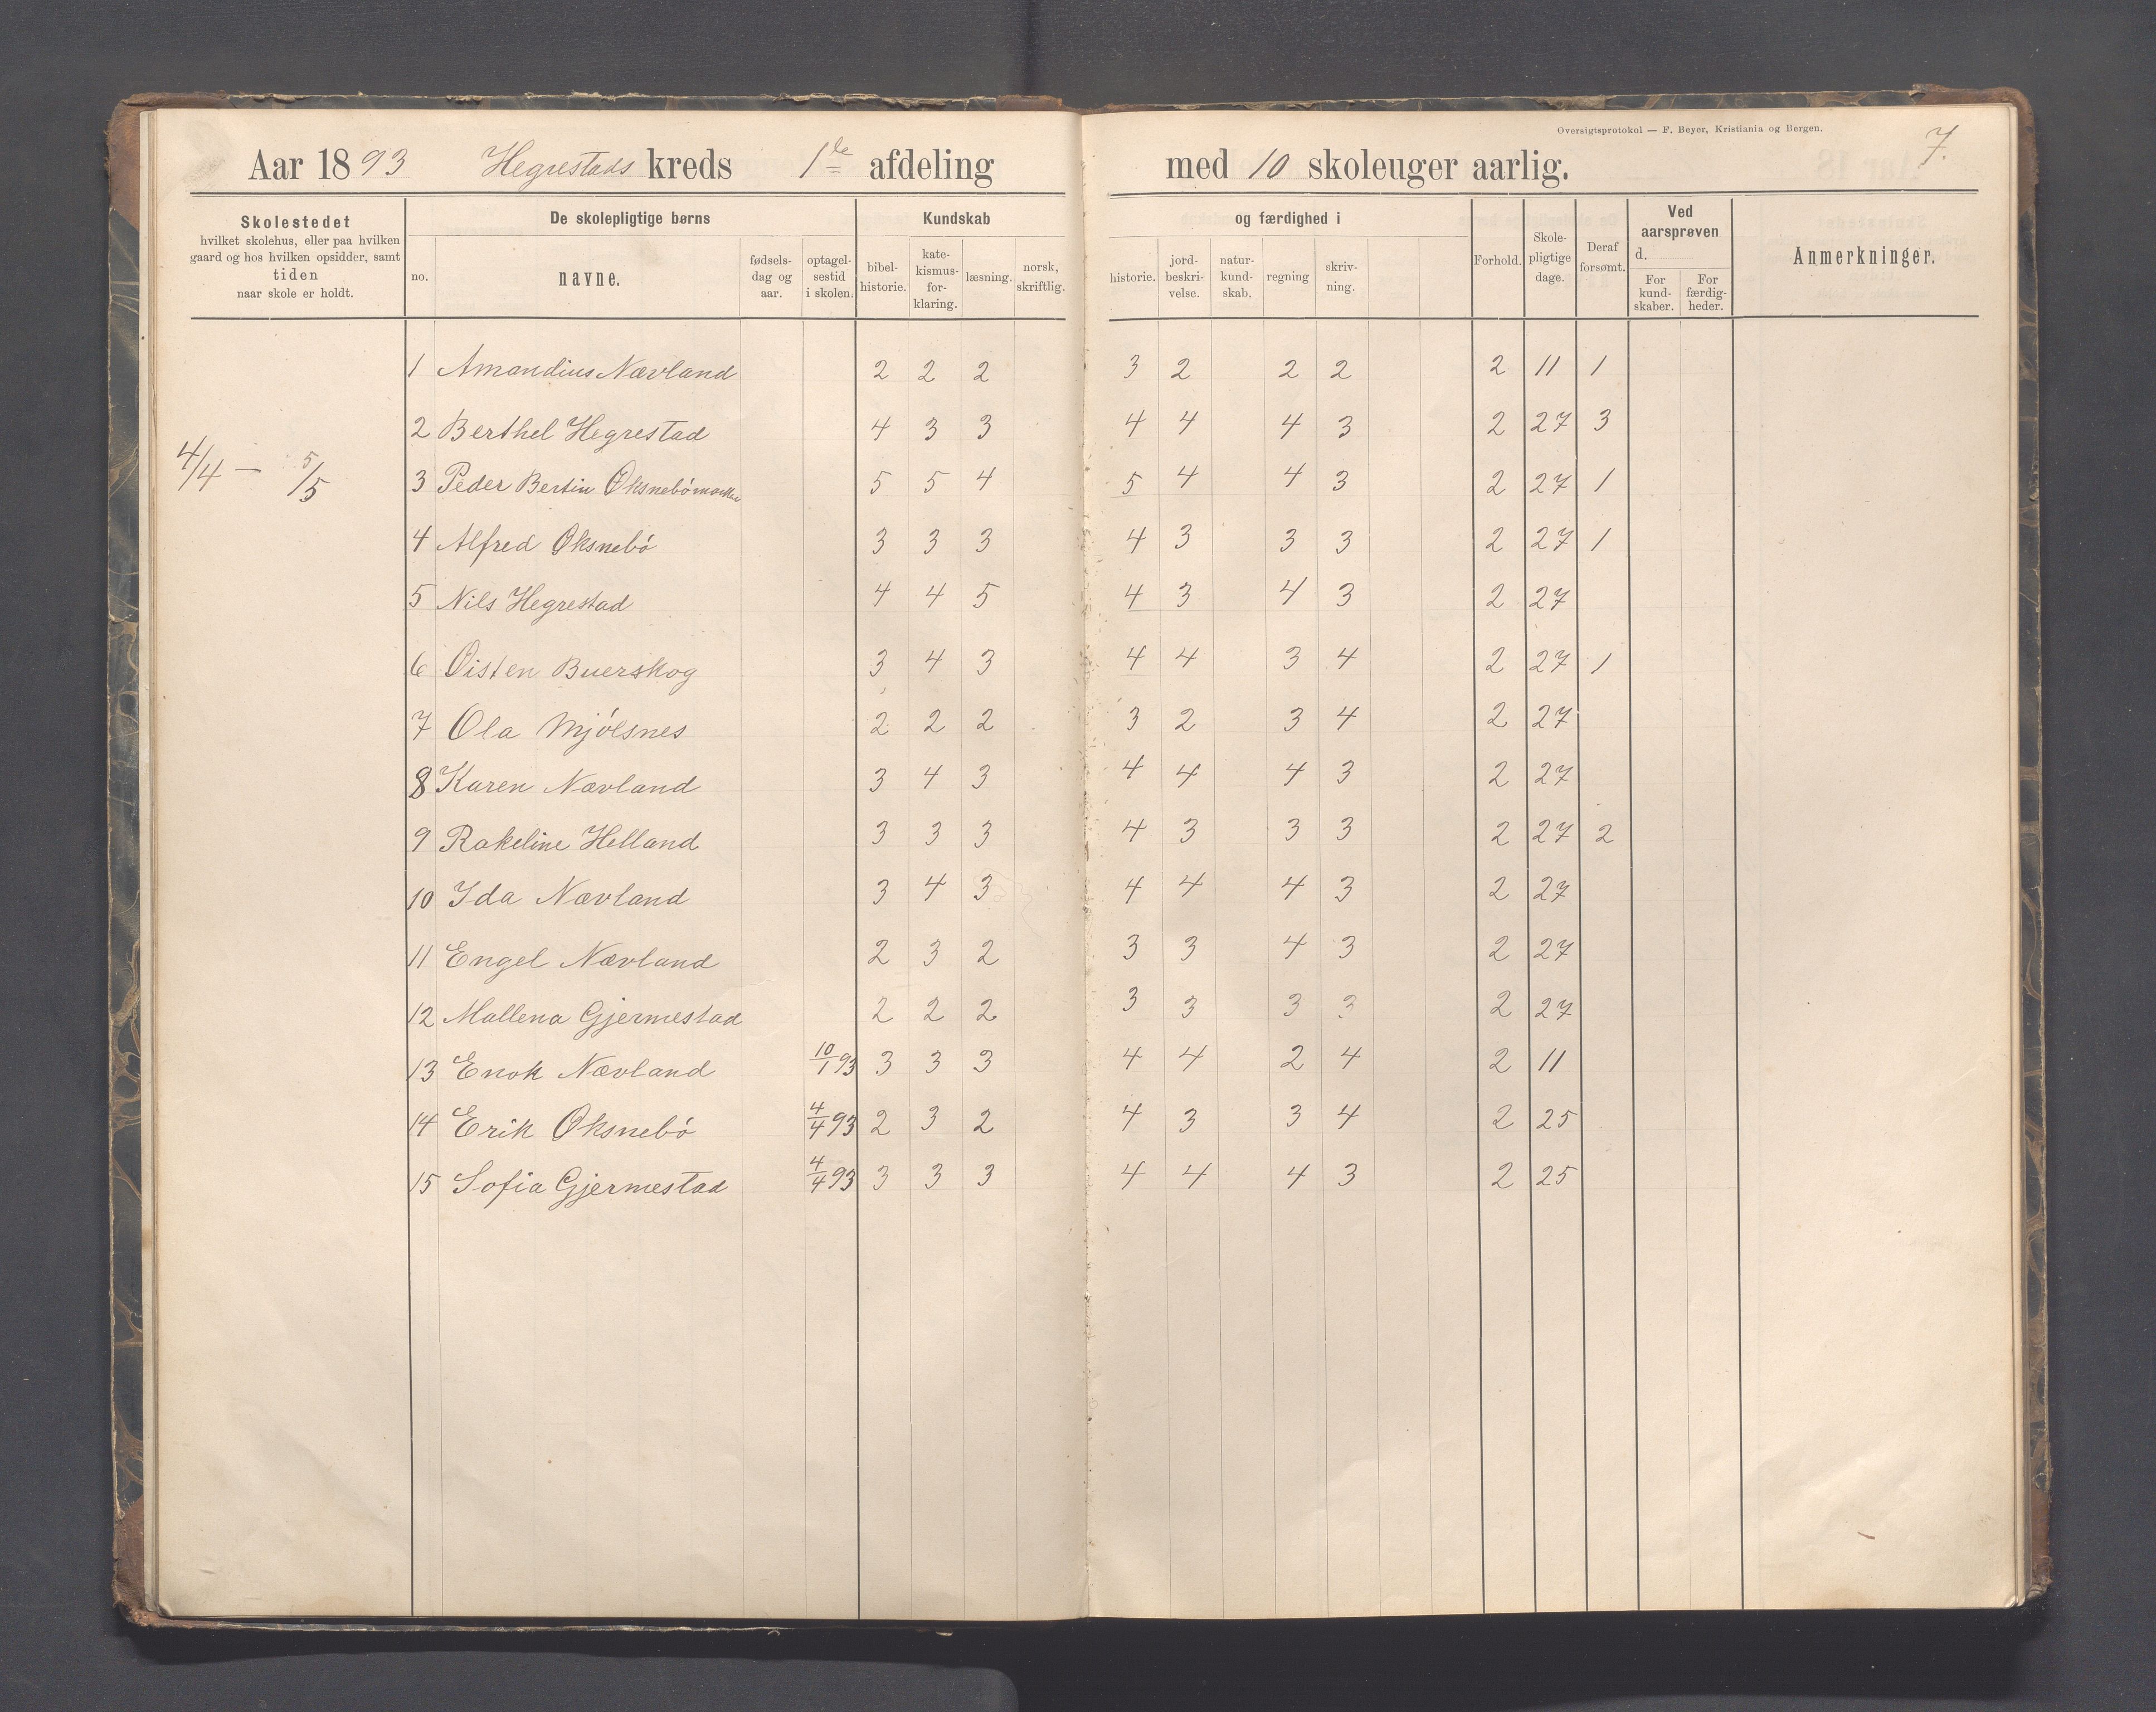 Oversigtsprotokol — F. Beyer, Kristiania og Bergen.
7.
Aar 1893 Hegrestads kreds 1ste afdeling med 10 skoleuger aarlig.
Skolestedet
hvilket skolehus, eller paa hvilken
gaard og hos hvilken opsidder, samt
tiden
naar skole er holdt.
De skolepligtige børns
no.
navne.
fødsels-
dag og
aar.
optagel-
sestid
i skolen.
Kundskab og færdighed i
bibel-
historie.
kate-
kismus-
for-
klaring.
læsning.
norsk,
skriftlig.
historie.
jord-
beskri-
velse.
natur-
kund-
skab.
regning
skriv-
ning.
Forhold.
Skole-
pligtige
dage.
Deraf
forsømt.
Ved
aarsprøven
d.
For
kund-
skaber.
For
færdig-
heder.
Anmerkninger.
1 Amandius Nævland 2 2 2 3 2 2 2 2 11 1
2 Berthel Hegrestad 4 3 3 4 4 4 3 2 27 3
4/4 — 5/5
3 Peder Bertin 5 5 4 5 4 4 3 2 27 1
4 Alfred Øksnebö 3 3 3 4 3 3 3 2 27 1
5 Nils Hegrestad 4 4 5 4 3 4 3 2 27
6 Öisten Buerskog 3 4 3 4 4 3 4 2 27 1
7 Ola Mjölsnes 2 2 2 3 2 3 4 2 27
8 Karen Nævland 3 4 3 4 4 4 3 2 27
9 Rakeline Helland 3 3 3 4 3 3 3 2 27 2
10 Ida Nævland 3 4 3 4 4 4 3 2 27
11 Engel Nævland 2 3 2 3 3 4 3 2 27
12 Mallena Gjermestad 2 2 2 3 3 3 3 2 27
13 Enok Nævland 10/1 93 3 3 3 4 4 2 4 2 11
14 Erik Øksnebö 4/4 93 2 3 2 4 3 3 4 2 25
15 Sofia Gjermestad 4/4 93 3 3 3 4 4 4 3 2 25